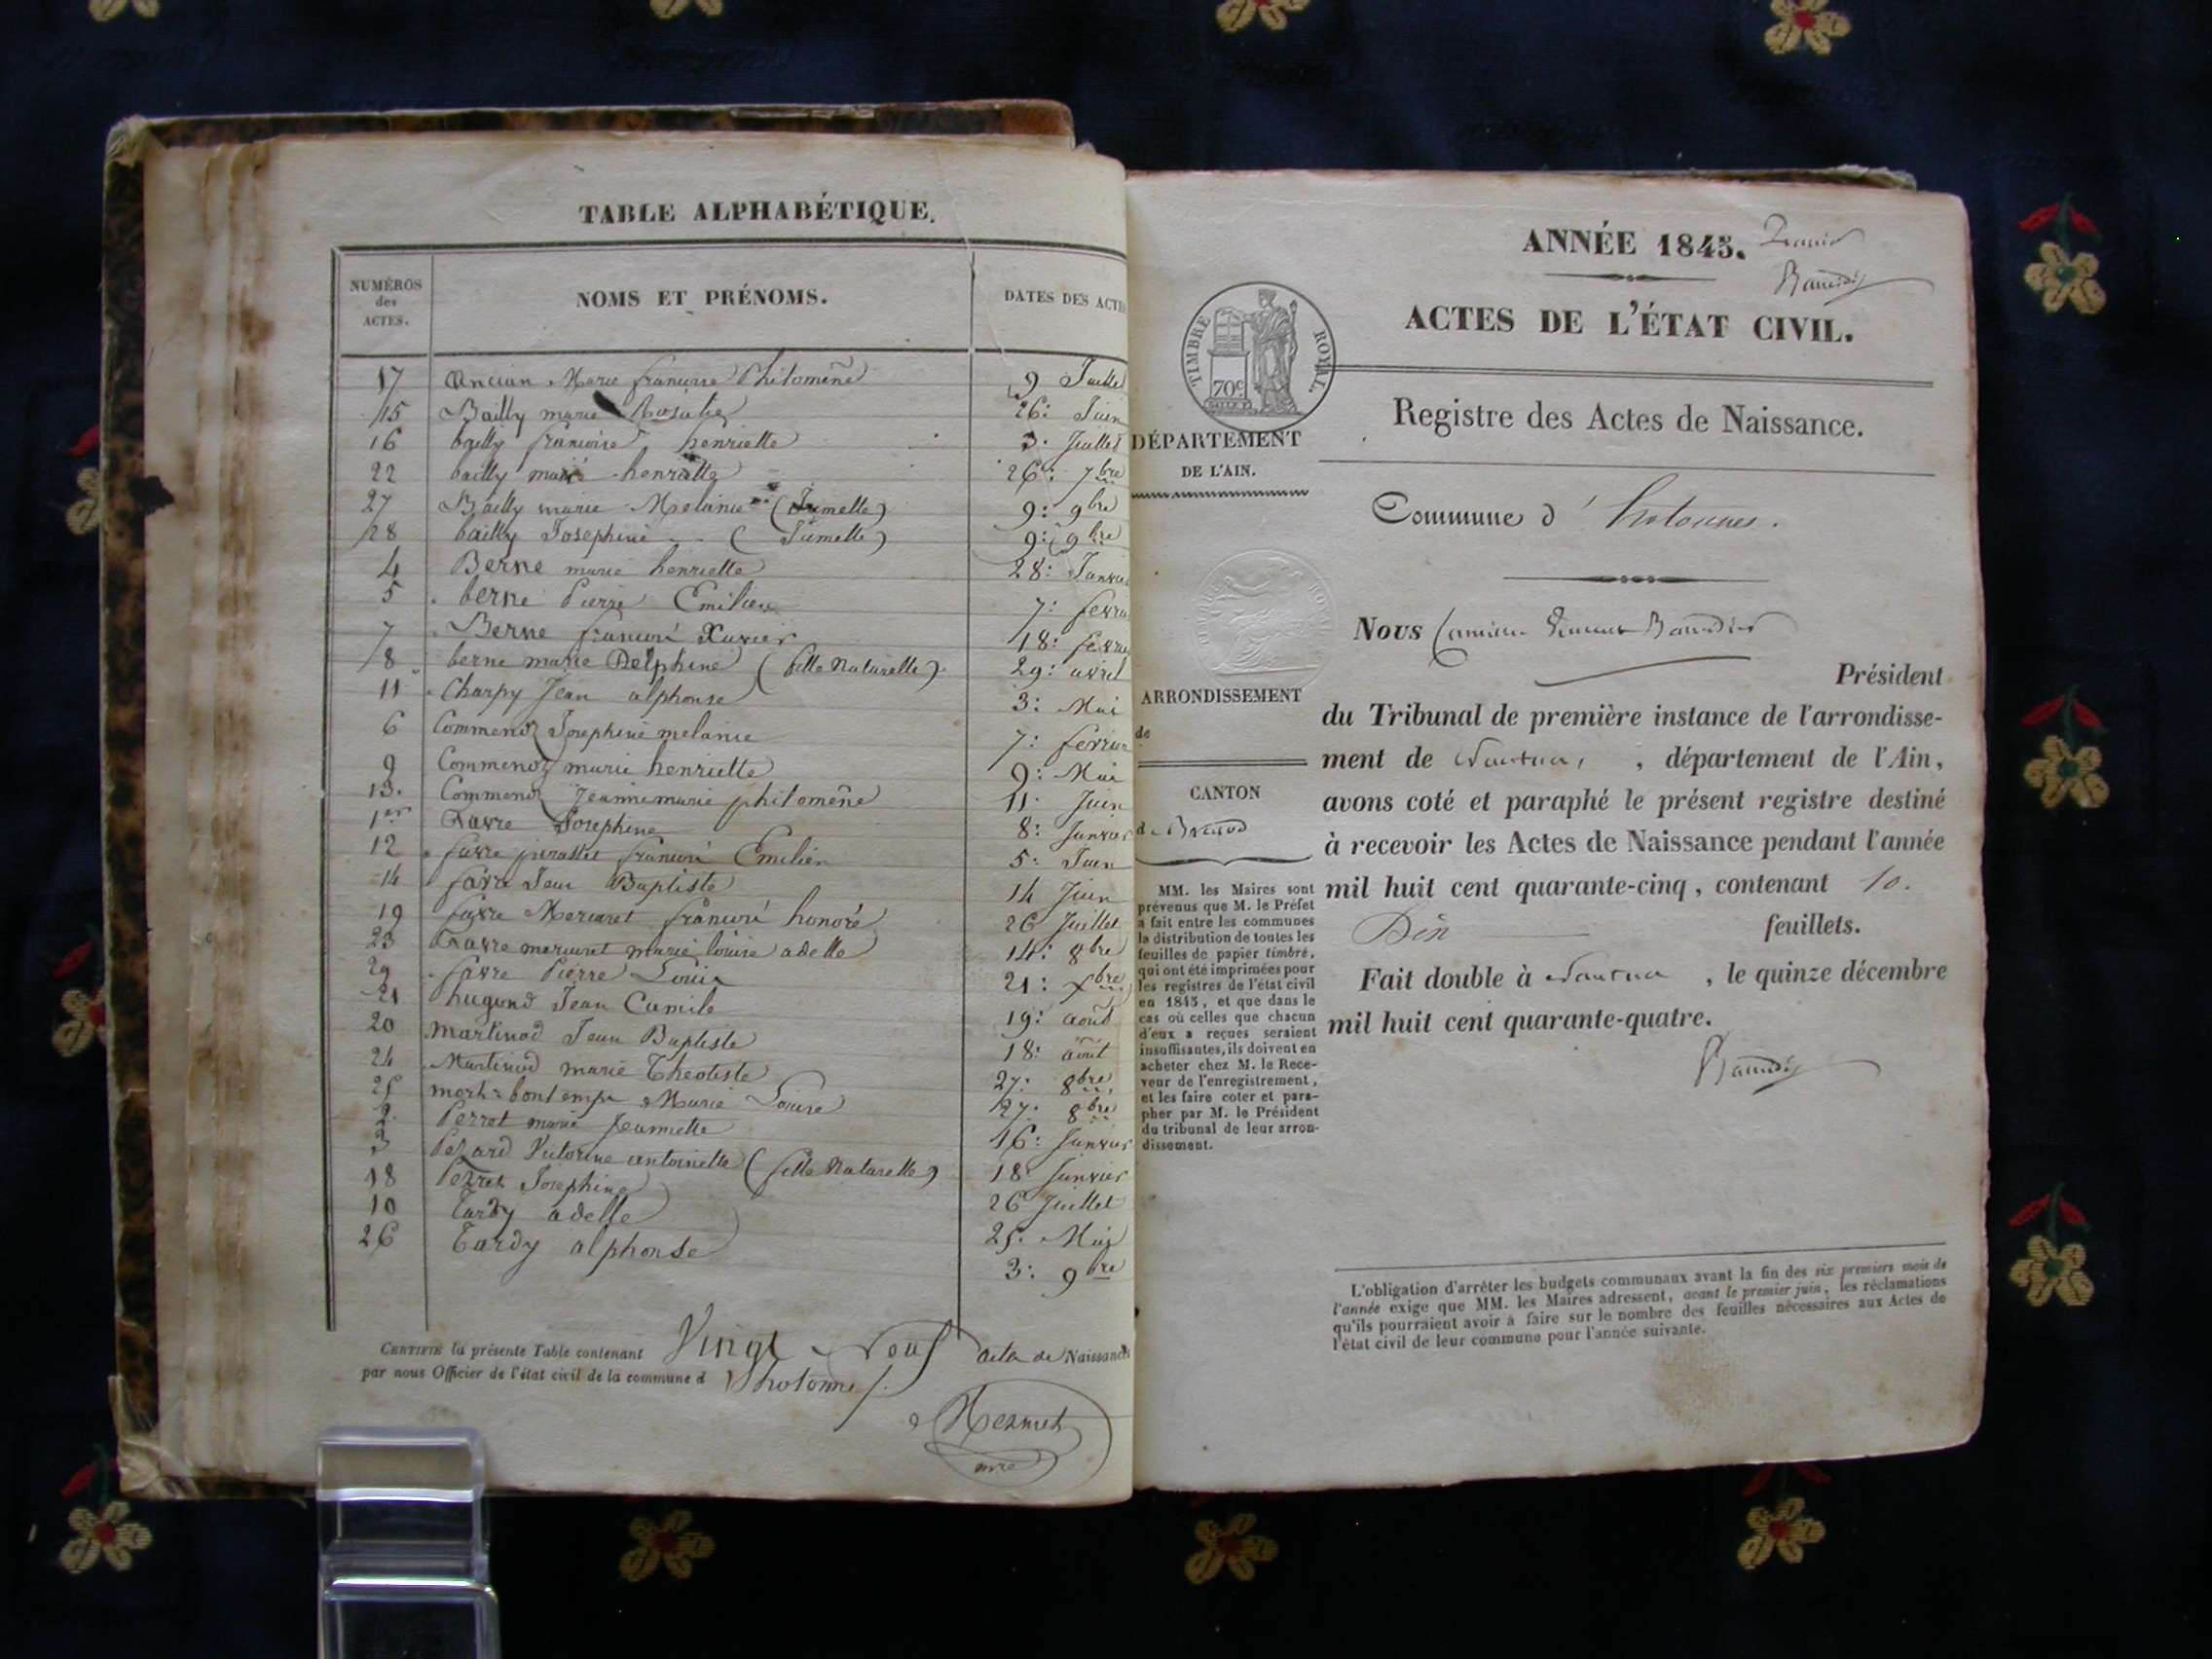 TABLE ALPHABÉTIQUE.
NUMÉROS des ACTES. NOMS ET PRÉNOMS. DATES DES ACTES
17 Ancian Marie françoise Philomène 9 Juillet
15 Bailly marie Rosalie 26: Juin
16 bailly francoise henriette 3. Juillet
22 bailly marie henriette 26: 7bre
27 Bailly marie Melanie (Jumelle) 9: 9bre
28 bailly Josephine (Jumelle) 9: 9bre
4 Berne marie henriette 28: Janvier
5 berne Pierre Emilien 7: fevrier
7 Berne francois Xavier 18: fevrier
8 berne marie Delphine (fille Naturelle) 29: avril
11 Charpy Jean alphonse 3: Mai
6 Commenoz Josephine melanie 7: fevrier
9 Commenoz marie henriette 9: Mai
13. Commenoz Jeannemarie philomène 11. Juin
1er Favre Josephine 8: Janvier
12 favre francois Emilien 5: Juin
14 favre Jean Baptiste 14 Juin
19 favre Mercuret francois honoré 26 Juillet
23 Favre mercuret marie louise adelle 14: 8bre
29 favre Pierre Louis 21: Xbre
21 hugond Jean Camile 19: août
20 martinod Jean Baptiste 18: août
24 Martinod marie Theotiste 27: 8bre
25 bontemps Marie Louise 27. 8bre
2. Perret marie Jeannette 16: Janvier
3 Victorine antoinette (fille Naturelle) 18: Janvier
18 Perret Josephine 26 Juillet
10 Tardy adelle 25. Mai
26 Tardy alphonse 3: 9bre
CERTIFIÉ la présente Table contenant Vingt Neuf acte de Naissances
par nous Officier de l'état civil de la commune d'hotonnes
ANNÉE 1845.
ACTES DE L'ÉTAT CIVIL.
TIMBRE ROYAL.
70c
Registre des Actes de Naissance.
DÉPARTEMENT
DE L'AIN.
Commune d'hotonnes.
Nous
Président
ARRONDISSEMENT
de
CANTON
de Brenod
MM. les Maires sont
prévenus que M. le Préfet
a fait entre les communes
la distribution de toutes les
feuilles de papier timbré,
qui ont été imprimées pour
les registres de l'état civil
en 1845, et que dans le
cas où celles que chacun
d'eux a reçues seraient
insuffisantes, ils doivent en
acheter chez M. le Rece-
veur de l'enregistrement,
et les faire coter et para-
pher par M. le Président
du tribunal de leur arron-
dissement.
du Tribunal de première instance de l'arrondisse-
ment de Nantua, , département de l'Ain,
avons coté et paraphé le présent registre destiné
à recevoir les Actes de Naissance pendant l'année
mil huit cent quarante-cinq, contenant 10.
Dix feuillets.
Fait double à Nantua , le quinze décembre
mil huit cent quarante-quatre.
L'obligation d'arrêter les budgets communaux avant la fin des six premiers mois de
l'année exige que MM. les Maires adressent, avant le premier juin, les réclamations
qu'ils pourraient avoir à faire sur le nombre des feuilles nécessaires aux Actes de
l'état civil de leur commune pour l'année suivante.